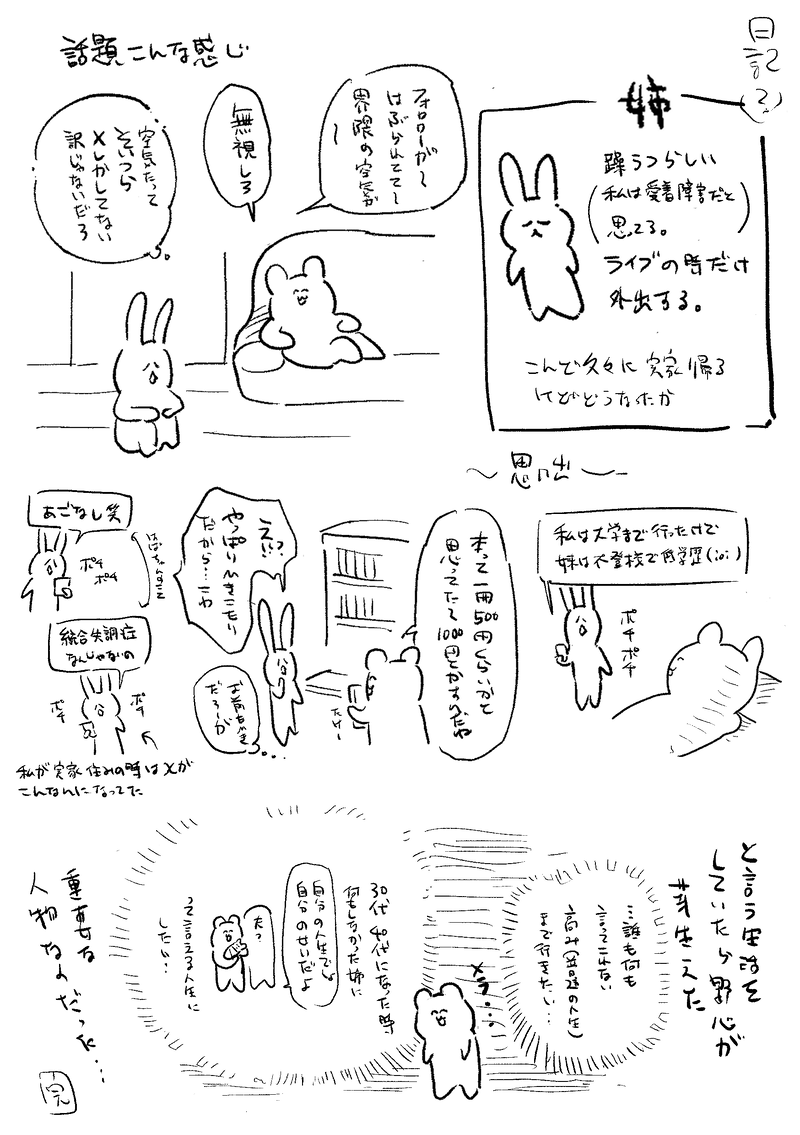 日記
②
姉
躁うつらしい
(私は愛着障害だと
思ってる。)
ライブの時だけ
外出する。
こんど久々に実家帰る
けどどうなったか
話題こんな感じ
フォロワーが〜
はぶられてて〜
界隈の空気が
〜
無視しろ
空気たって
そいつら
Xしかしてない
訳じゃないだろ
〜思い出〜
私は大学まで行ったけど
妹は不登校で低学歴(;o;)
ポチ
ポチ
本って一冊500円くらいかと
思ってたて1000円とかすりだね
たけー
え!?
やっぱりひきこもり
だから…こわ
お前もひき
だろーが
あごなし笑
ポチ
ポチ
統合失調症
なんじゃないの
ポチ
ポチ
私が実家住みの時はXが
こんなんになってた
と言う生活を
していたら野心が
芽生えた
…誰も何も
言ってこれない
高み(普通の人生)
まで行きたい…
メラ…
30代40代になった時
何もしなかった姉に
自分の人生でしょ
自分のせいだよ
たっ
って言える人生に
したい…
重要な
人物なのだった…
完